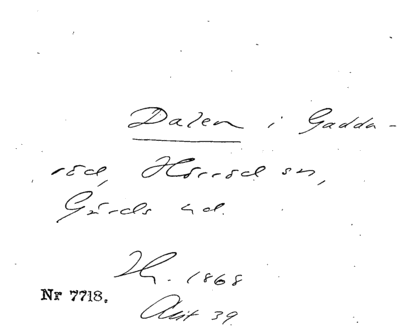 Dalen i Gadda-
röd, Hörröd sn,
Gärds hd.
1868
Nr 7718.
39